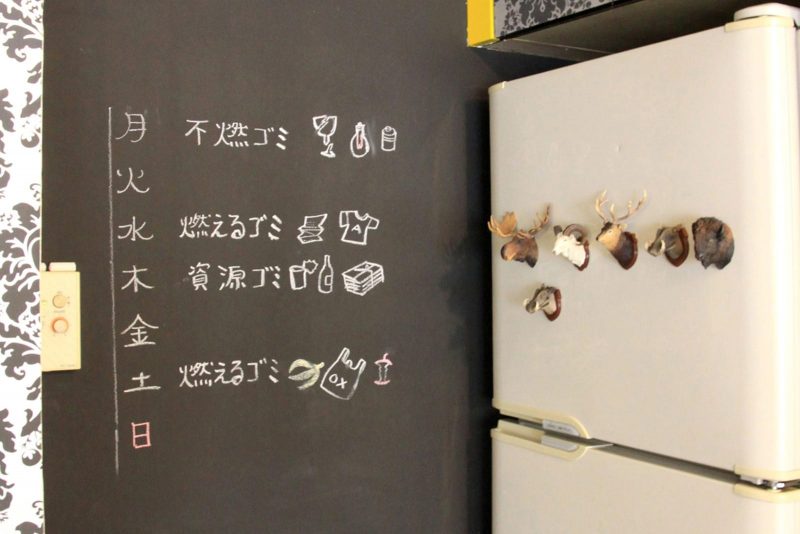 月 不燃ゴミ
火
水 燃えるゴミ
木 資源ゴミ
金
土 燃えるゴミ OX
日